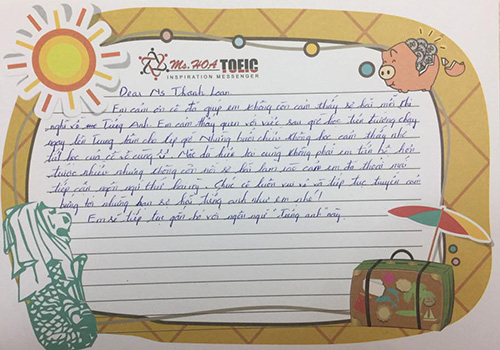 Ms.HOA TOEIC
INSPIRATION MESSENGER
Dear Ms Thanh Loan
Em cảm ơn cô đã giúp em không còn cảm thấy sợ hãi mỗi khi
nghĩ về môn Tiếng Anh. Em cảm thấy quen với việc sau giờ học trên trường chạy
ngay lên Trung tâm cho kịp giờ. Những buổi chiều không học cảm thấy nhớ
tiết học của cô vô cùng ý. Mặc dù hiện tại cũng không phải em tiến bộ hơn
trước nhiều nhưng không còn nỗi sợ hãi làm cho em đã thoải mái
tiếp cận môn ngữ thú hơn rồi. Chúc cô luôn vui vẻ và tiếp tục truyền cảm
hứng tới những bạn sợ hãi tiếng anh như em nhé!
Em sẽ tiếp tục gắn bó với ngôn ngữ "Tiếng anh" này.